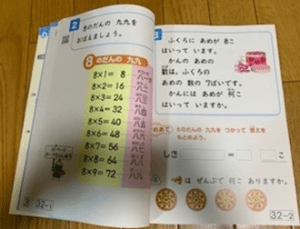 2
8のだんの 九九を
おぼえましょう。
8 のだんの 九九
8×1= 8
8×2=16
8×3=24
8×4=32
8×5=40
8×6=48
8×7=56
8×8=64
8×9=72
32-1
3
ふくろに あめが 8こ
はいって います。
かんの あめの
数は、ふくろの
あめの 数の 7ばいです。
かんには あめが 何こ
はいって いますか。
8のだんの 九九を つかって 答えを
もとめよう。
しき
=
こ
は ぜんぶで 何こ ありますか。
32-2